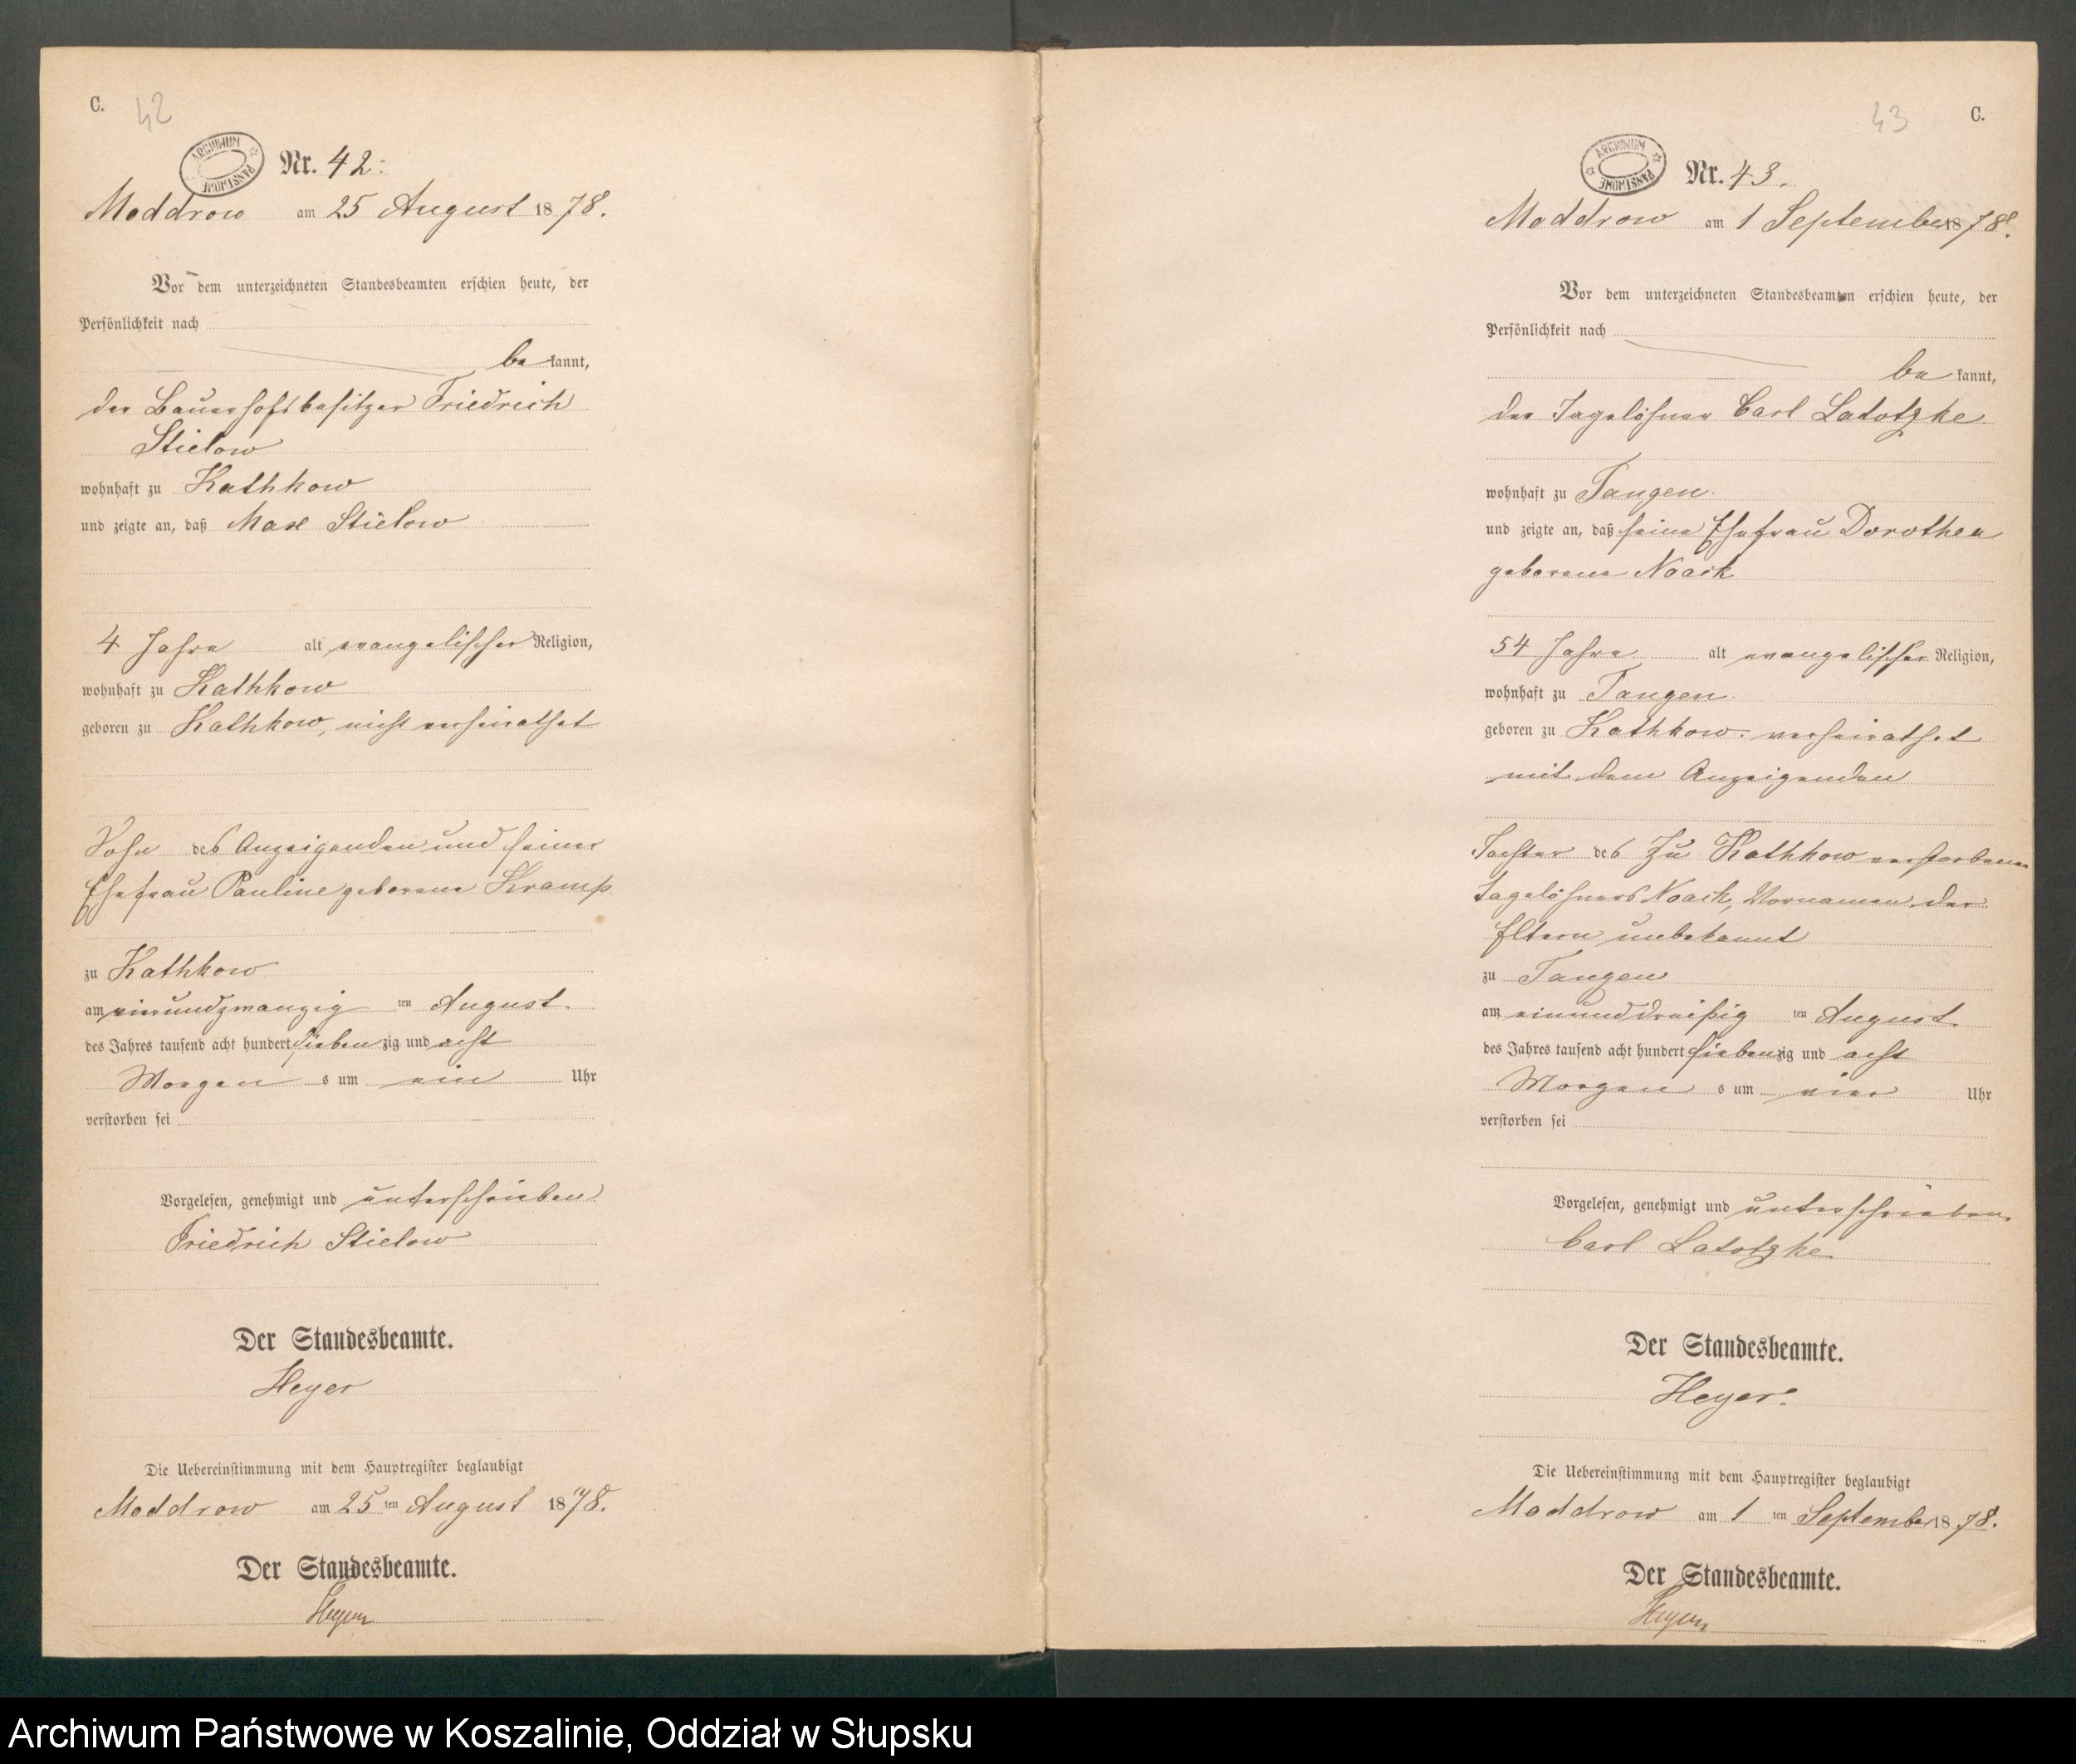 C. 42
ARCHIWUM PAŃSTWOWE
Nr. 42.
Moddrow am 25 August 1878.
Vor dem unterzeichneten Standesbeamten erschien heute, der
Persönlichkeit nach
bekannt,
der Bauerhofsbesitzer Friedrich
Stielow
wohnhaft zu Kathkow
und zeigte an, daß Max Stielow
4 Jahre alt evangelischer Religion,
wohnhaft zu Kathkow
geboren zu Kathkow, nicht verheirathet
Sohn des Anzeigenden und seiner
Ehefrau Pauline geborene Kramp
zu Kathkow
am vierundzwanzig ten August
des Jahres tausend acht hundert siebenzig und acht
Morgens um ein Uhr
verstorben sei
Vorgelesen, genehmigt und unterschrieben
Friedrich Stielow
Der Standesbeamte.
Heyer
Die Uebereinstimmung mit dem Hauptregister beglaubigt
Moddrow am 25ten August 1878.
Der Standesbeamte.
Heyer
43 C.
ARCHIWUM PAŃSTWOWE
Nr. 43.
Moddrow am 1 September 1878.
Vor dem unterzeichneten Standesbeamten erschien heute, der
Persönlichkeit nach
bekannt,
der Tagelöhner Carl Latotzke
wohnhaft zu Tangen
und zeigte an, daß seine Ehefrau Dorothea
geborene Noack
54 Jahre alt evangelischer Religion,
wohnhaft zu Tangen
geboren zu Kathkow. verheirathet
mit dem Anzeigenden
Tochter des zu Kathkow verstorbenen
Tagelöhners Noack, Vornamen der
Eltern unbekannt
zu Tangen
am einunddreißig ten August
des Jahres tausend acht hundert siebenzig und acht
Morgens um vier Uhr
verstorben sei
Vorgelesen, genehmigt und unterschrieben
Carl Latotzke
Der Standesbeamte.
Heyer.
Die Uebereinstimmung mit dem Hauptregister beglaubigt
Moddrow am 1 ten September 1878.
Der Standesbeamte.
Heyer
Archiwum Państwowe w Koszalinie, Oddział w Słupsku